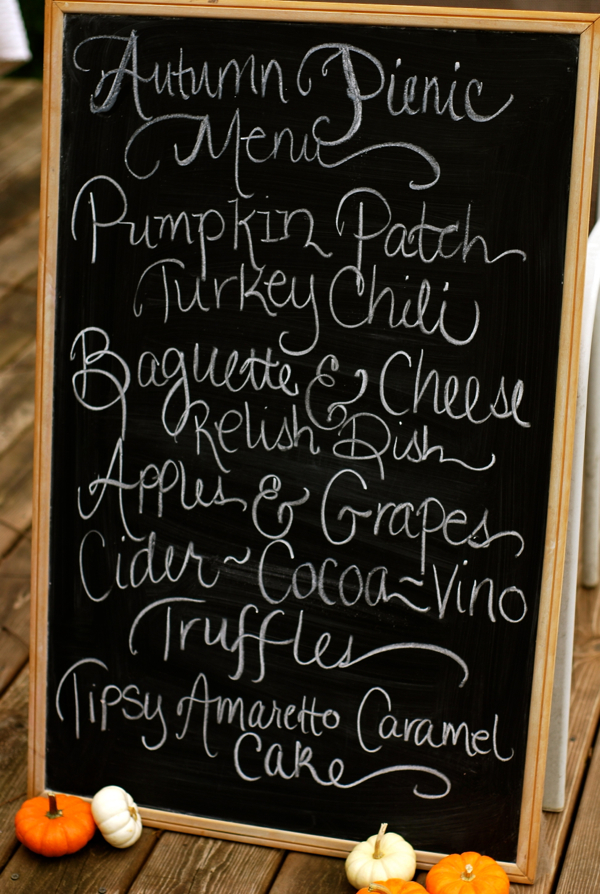 Autumn Picnic
Menu
Pumpkin Patch
Turkey Chili
Baguette & Cheese
Relish Dish
Apples & Grapes
Cider ~ Cocoa ~ Vino
Truffles
Tipsy Amaretto Caramel
Cake